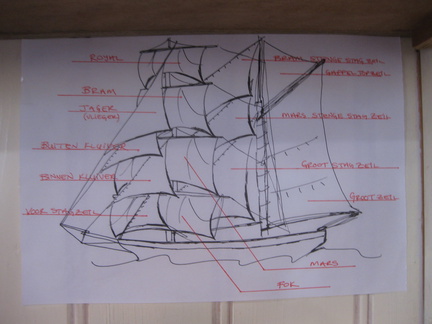 ROYAL
BRAM
JAGER
(VLIEGER)
BUITEN KLUIVER
BINNEN KLUIVER
VOOR STAGZEIL
BRAM STENGE STAG ZEIL
GAFFELTOPZEIL
MARS STENGE STAG ZEIL
GROOT STAG ZEIL
GROOTZEIL
MARS
FOK